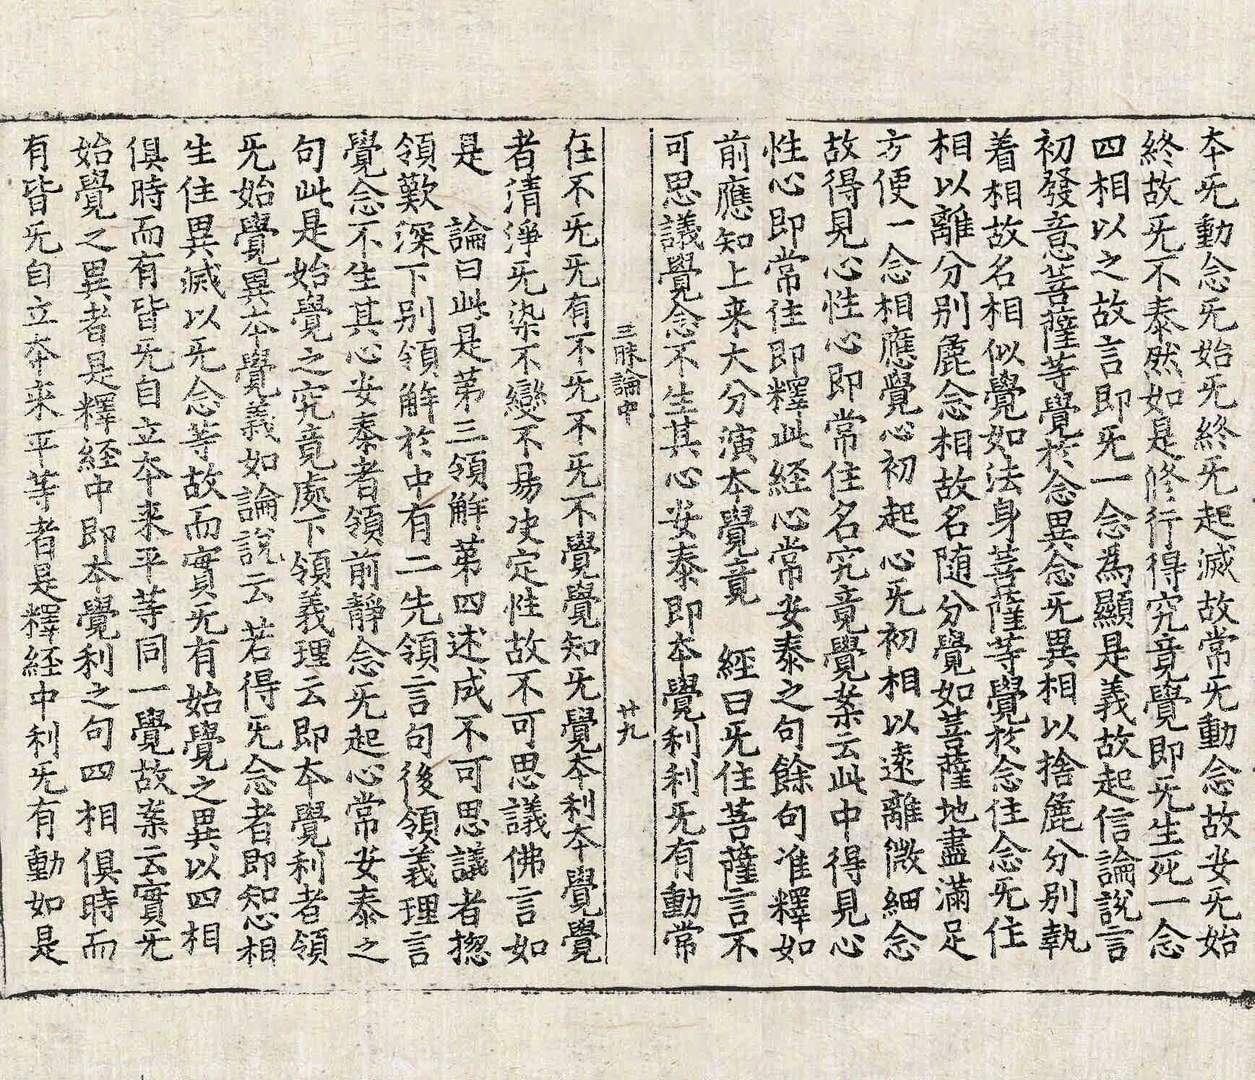 本旡動念旡始旡終旡起滅故常旡動念故安旡始
終故旡不泰然如是修行得究竟覺即旡生死一念
四相以之故言即旡一念爲顯是義故起信論說言
初發意菩薩等覺於念異念旡異相以捨麁分別執
着相故名相似覺如法身菩薩等覺於念住念旡住
相以離分別麁念相故名随分覺如菩薩地盡滿足
方便一念相應覺心初起心旡初相以遠離微細念
故得見心性心即常住名究竟覺案云此中得見心
性心即常住即釋此經心常安泰之句餘句准釋如
前應知上来大分演本覺竟　經曰旡住菩薩言不
可思議覺念不生其心安泰即本覺利利旡有動常
三昧論中　廿九
在不旡旡有不旡不旡不覺覺知旡覺本利本覺覺
者清淨旡染不變不易决定性故不可思議佛言如
是　論曰此是苐三領解苐四述成不可思議者揔
領歎深下别領解於中有二先領言句後領義理言
覺念不生其心安泰者領前靜念旡起心常安泰之
句此是始覺之究竟處下領義理云即本覺利者領
旡始覺異本覺義如論說云若得旡念者即知心相
生住異滅以旡念等故而實旡有始覺之異以四相
俱時而有皆旡自立本来平等同一覺故案云實旡
始覺之異者是釋経中即本覺利之句四相俱時而
有皆旡自立本来平等者是釋経中利旡有動如是